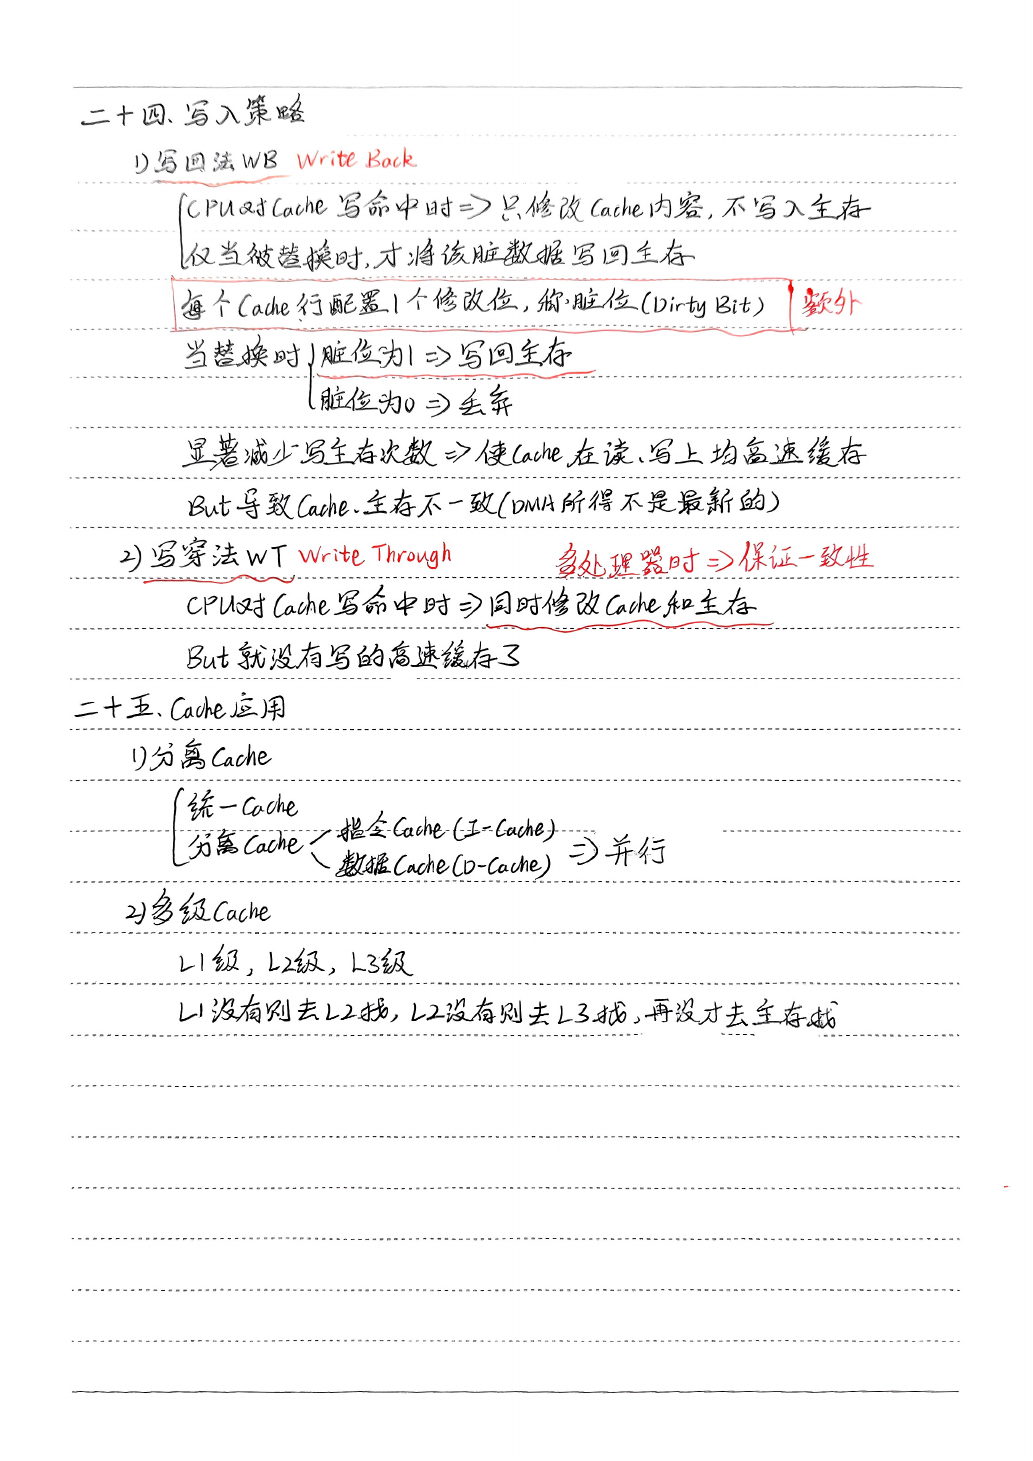 二十四、写入策略
1)写回法WB Write Back
CPU对Cache写命中时⇒只修改Cache内容,不写入主存
仅当被替换时,才将该脏数据写回主存
每个Cache行配置1个修改位,称脏位(Dirty Bit) 额外
当替换时 脏位为1⇒写回主存
脏位为0⇒丢弃
显著减少写主存次数⇒使Cache在读、写上均高速缓存
But导致Cache、主存不一致(DMA所得不是最新的)
2)写穿法WT Write Through 多处理器时⇒保证一致性
CPU对Cache写命中时⇒同时修改Cache和主存
But就没有写的高速缓存了
二十五、Cache应用
1)分离Cache
统一Cache
分离Cache 指令Cache(I-Cache)
数据Cache(D-Cache) ⇒并行
2)多级Cache
L1级,L2级,L3级
L1没有则去L2找,L2没有则去L3找,再没才去主存找